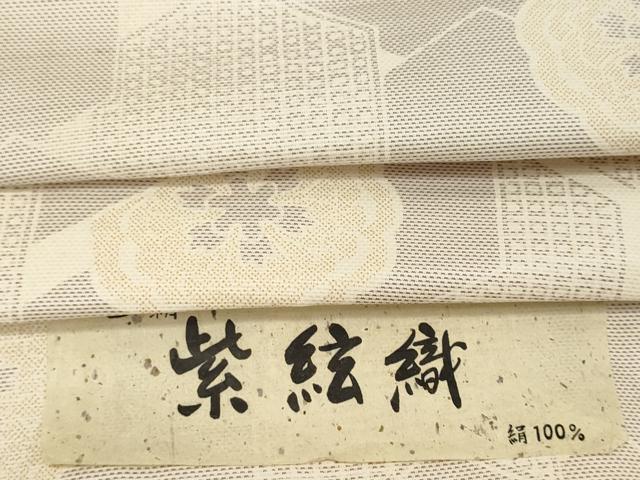 紫絃織
絹100%